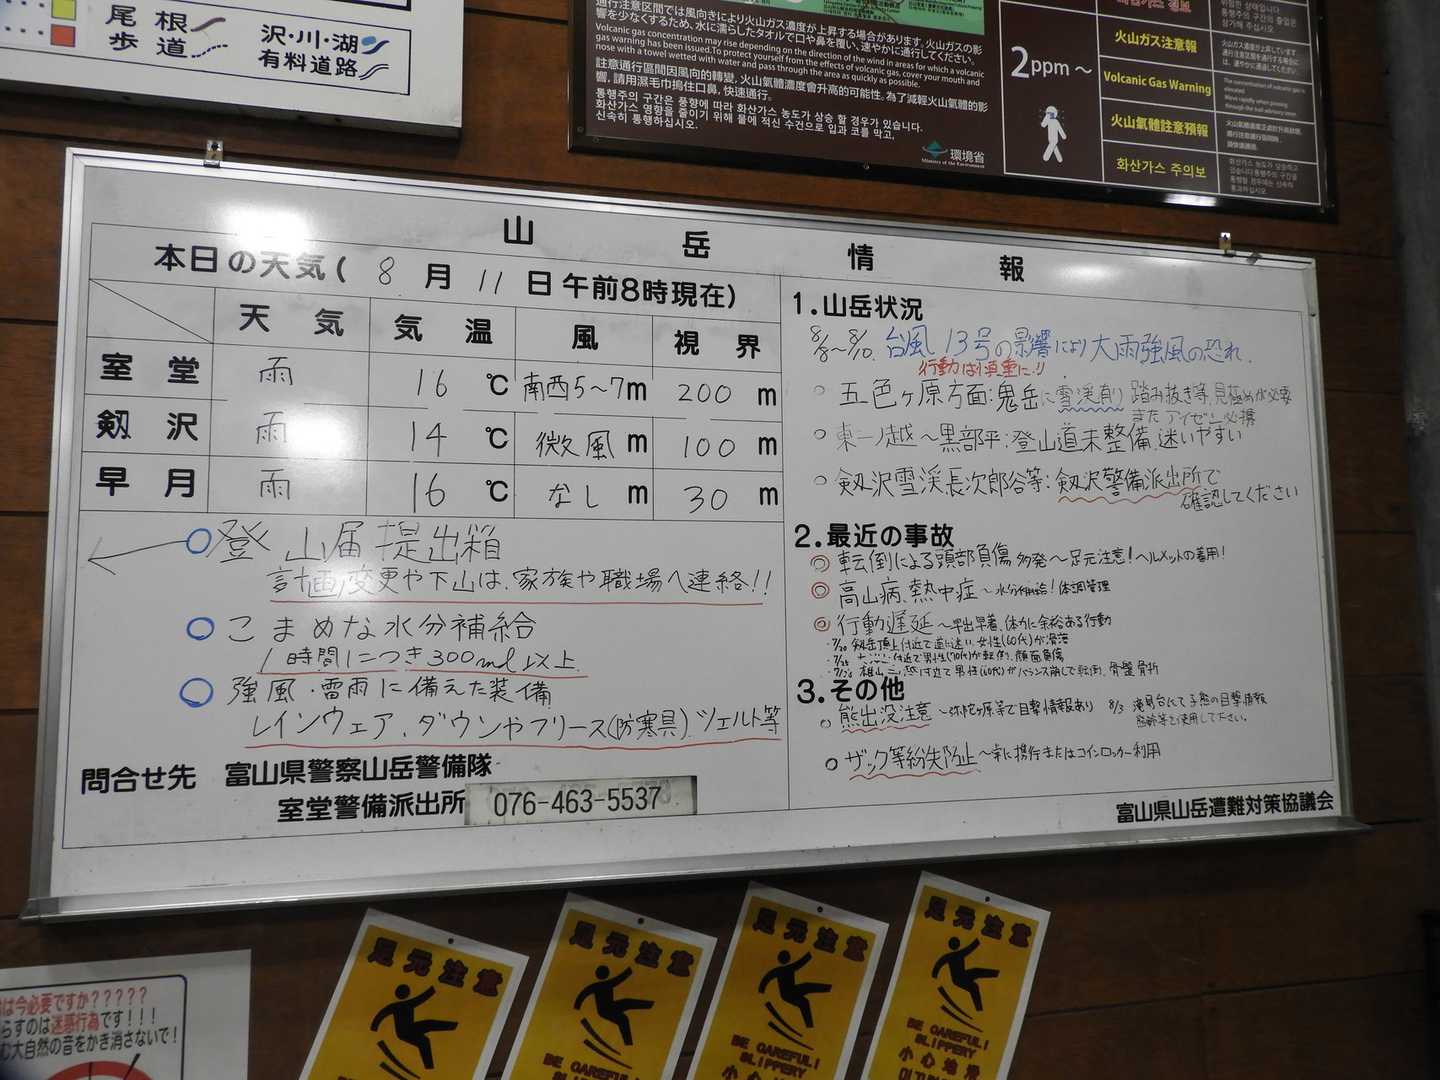 尾根
歩道
沢・川・湖
有料道路
通行注意区間では風向きにより火山ガス濃度が上昇する場合があります。火山ガスの影
響を少なくするため、水に濡らしたタオルで口や鼻を覆い、速やかに通行してください。
Volcanic gas concentration may rise depending on the direction of the wind in areas for which a volcanic
gas warning has been issued. To protect yourself from the effects of volcanic gas, cover your mouth and
nose with a towel wetted with water and pass through the area as quickly as possible.
註意通行區間因風向的轉變，火山氣體濃度會升高的可能性。為了減輕火山氣體的影
響，請用濕毛巾摀住口鼻，快速通行。
통행주의 구간은 풍향에 따라 화산가스 농도가 상승 할 경우가 있습니다.
화산가스 영향을 줄이기 위해 물에 적신 수건으로 입과 코를 막고,
신속히 통행하십시오.
環境省
Ministry of the Environment
2ppm～
火山ガス注意報
Volcanic Gas Warning
火山氣體註意預報
화산가스 주의보
山岳情報
本日の天気(8月11日午前8時現在)
天気 気温 風 視界
室堂 雨 16℃ 南西5～7m 200m
剱沢 雨 14℃ 微風m 100m
早月 雨 16℃ なしm 30m
○登山届提出箱
計画変更や下山は、家族や職場へ連絡!!
○こまめな水分補給
1時間につき300ml以上
○強風・雷雨に備えた装備
レインウェア、ダウンやフリース(防寒具)ツェルト等
問合せ先 富山県警察山岳警備隊
室堂警備派出所 076-463-5537
1.山岳状況
8/8～8/10. 台風13号の影響により大雨強風の恐れ.
行動は慎重に!!
○五色ヶ原方面:鬼岳に雪渓有り 踏み抜き等、見極めが必要
またアイゼン必携
○東一ノ越～黒部平:登山道未整備、迷いやすい
○剱沢雪渓長次郎谷等:剱沢警備派出所で
確認してください
2.最近の事故
◎転倒による頭部負傷多発～足元注意!ヘルメットの着用!
◎高山病、熱中症～水分補給!体調管理
◎行動遅延～早出早着、体力に余裕ある行動
・7/20 剱岳頂上付近で道に迷い女性(60代)が滑落
付近で男性(70代)が転倒、顔面負傷
付近で男性(60代)がバランス崩して転倒、骨盤骨折
3.その他
○熊出没注意～弥陀ヶ原等で目撃情報あり 8/3 滝見台にて子熊の目撃情報
熊鈴等を使用して下さい。
○ザック等紛失防止～常に携行またはコインロッカー利用
富山県山岳遭難対策協議会
は今必要ですか?????
らすのは迷惑行為です!!!
む大自然の音をかき消さないで!
足元注意
足元注意
BE CAREFUL!
足元注意
BE CAREFUL!
SLIPPERY
小心地滑
足元注意
BE CAREFUL!
SLIPPERY
小心地滑